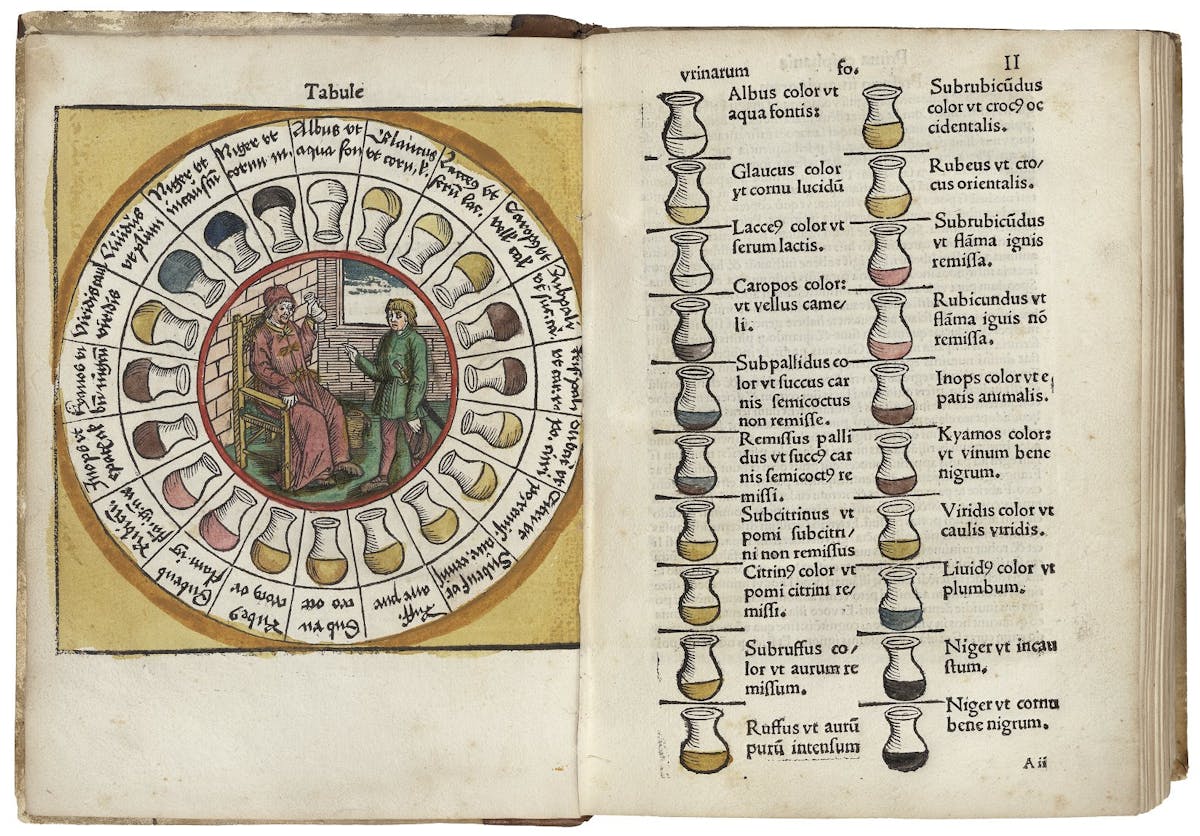 Tabule
Albus vt
aqua fon
Glaucus
vt corn, k.
Lacce9 vt
serū lac.
Niger vt
cornu m.
Niger vt
Liuidus
vt plum
Viridis
Kyanos vt
Inops vt
Rubeus
Subru
vrinarum
fo.
II
Albus color vt
aqua fontis:
Glaucus color
vt cornu lucidū
Lacce9 color vt
serum lactis.
Caropos color:
vt vellus came/
li.
Subpallidus co/
lor vt succus car
nis semicoctus
non remisse.
Remissus palli
dus vt succ9 car
nis semicoct9 re
missi.
Subcitrinus vt
pomi subcitri/
ni non remissus
Citrin9 color vt
pomi citrini re/
missi.
Subruffus co/
lor vt aurum re
missum.
Ruffus vt aurū
purū intensum
Subrubicūdus
color vt croc9 oc
cidentalis.
Rubeus vt cro/
cus orientalis.
Subrubicūdus
vt flāma ignis
remissa.
Rubicundus vt
flāma iguis nō
remissa.
Inops color vt e
patis animalis.
Kyamos color:
vt vinum bene
nigrum.
Viridis color vt
caulis viridis.
Liuid9 color vt
plumbum.
Niger vt incau
stum.
Niger vt cornu
bene nigrum.
A ii